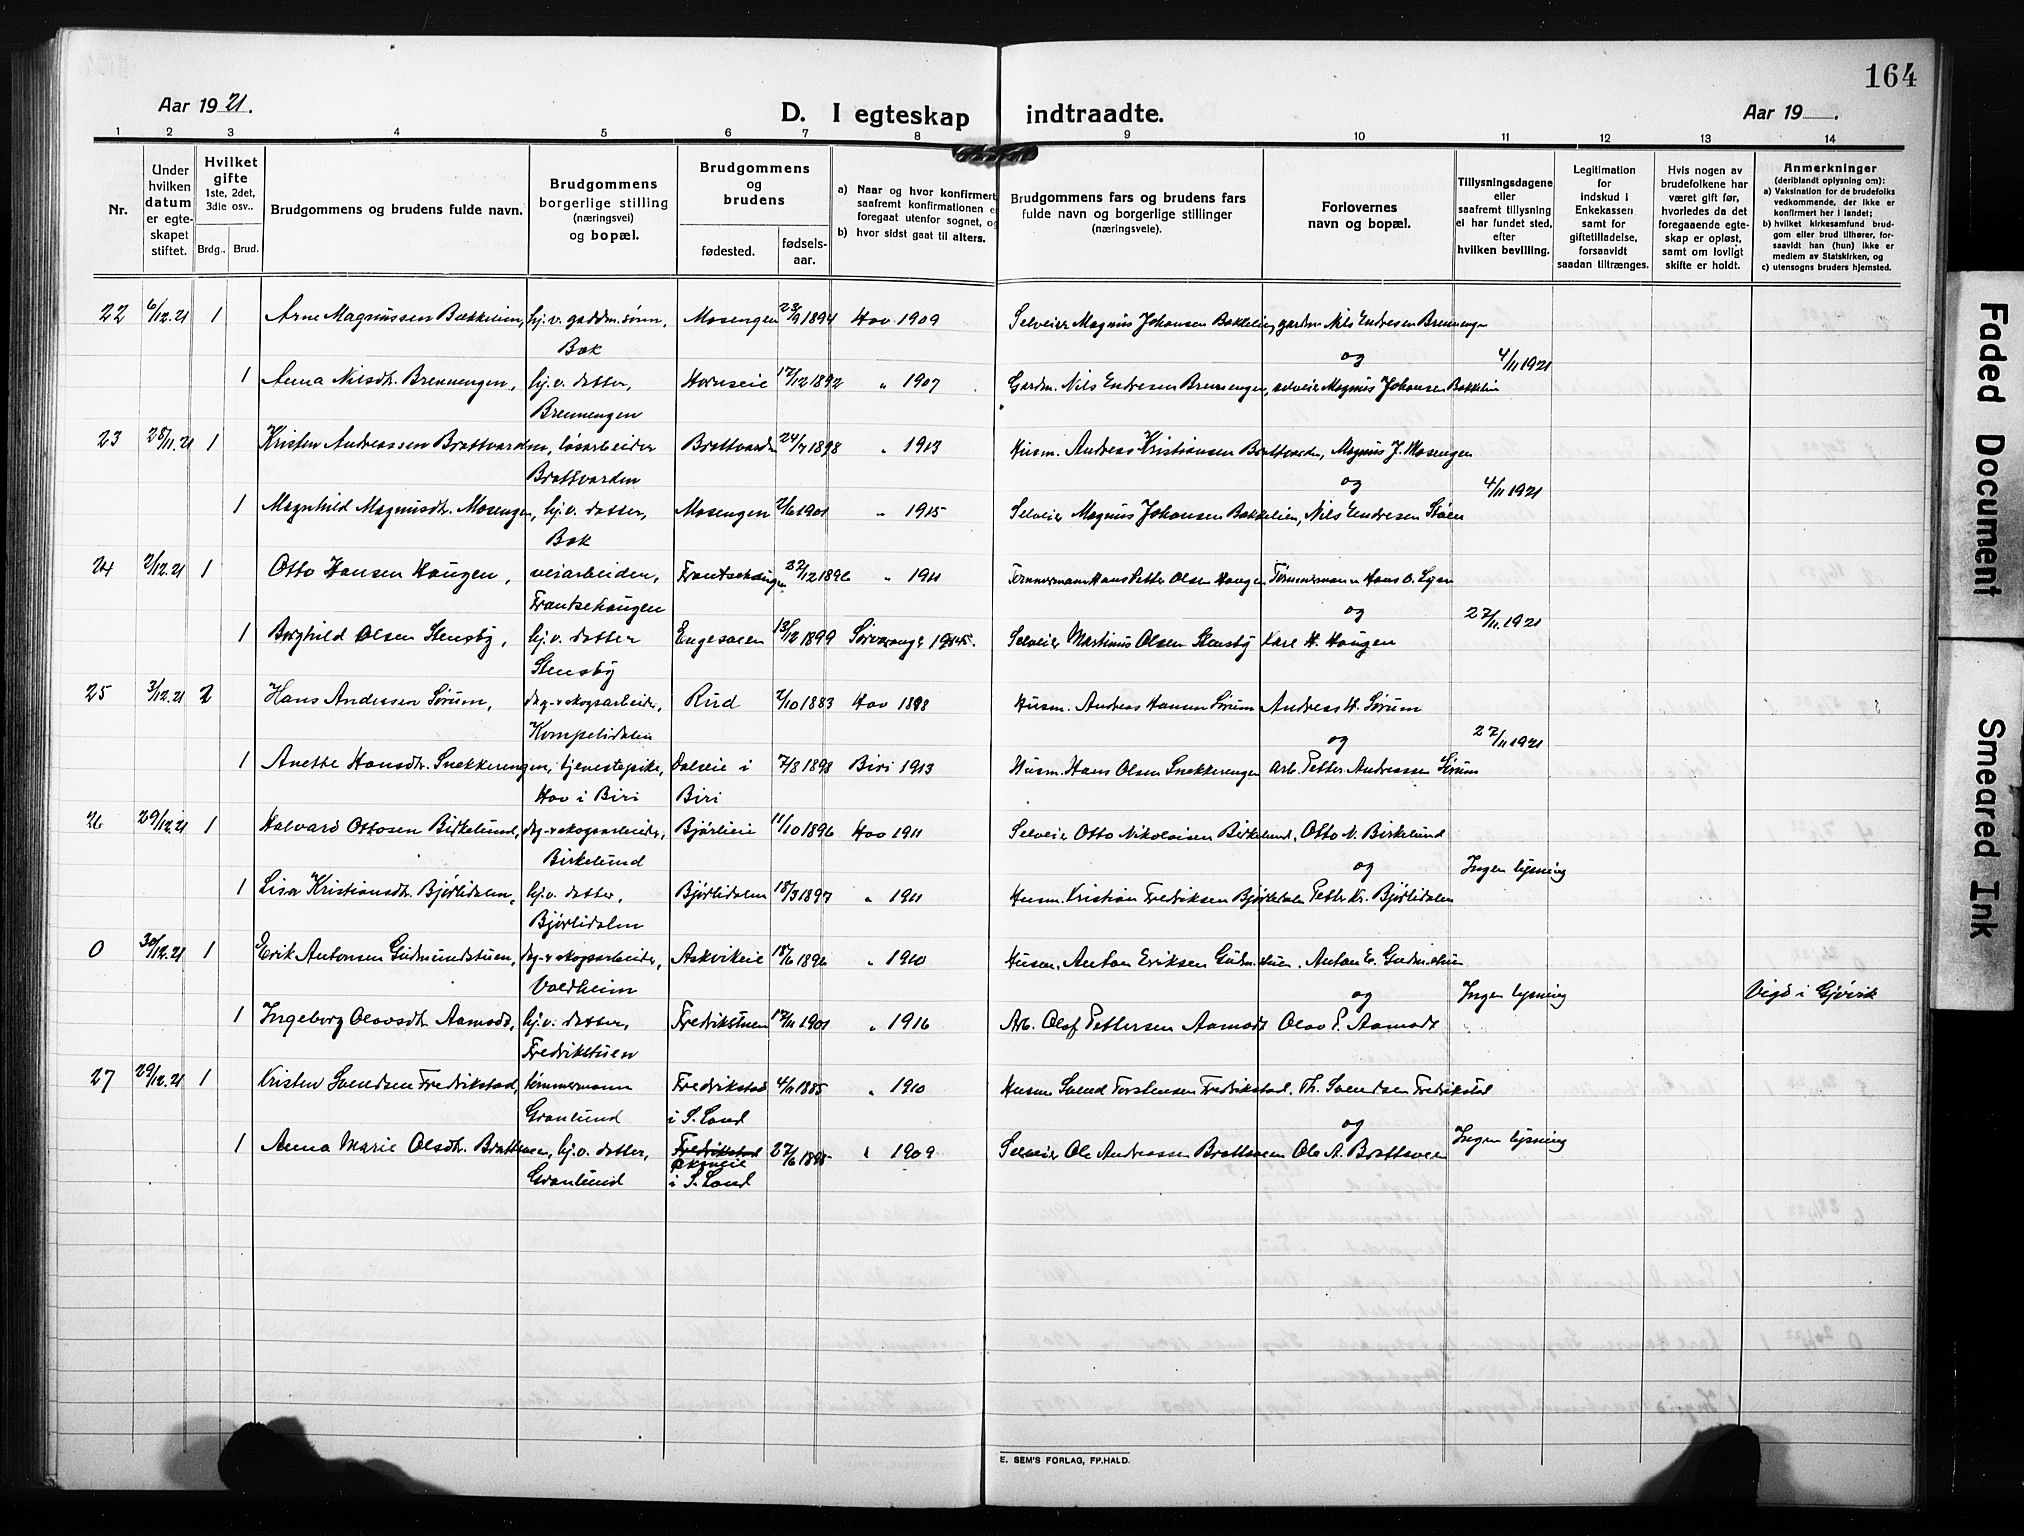 164
Aar 1921.
D. I egteskap indtraadte.
Aar 19 .
1 2 3 4 5 6 7 8 9 10 11 12 13 14
Nr.
Under hvilken datum er egteskapet stiftet.
Hvilket gifte 1ste, 2det, 3die osv..
Brdg.. Brud.
Brudgommens og brudens fulde navn.
Brudgommens borgerlige stilling (næringsvei) og bopæl.
Brudgommens og brudens
fødested.
fødselsaar.
a) Naar og hvor konfirmert, saafremt konfirmationen er foregaat utenfor sognet, og
b) hvor sidst gaat til alters.
Brudgommens fars og brudens fars fulde navn og borgerlige stillinger (næringsveie).
Forlovernes navn og bopæl.
Tillysningsdagene eller saafremt tillysning ei har fundet sted, efter hvilken bevilling.
Legitimation for indskud i Enkekassen samt for giftetilladelse, forsaavidt saadan tiltrænges.
Hvis nogen av brudefolkene har været gift før, hvorledes da det foregaaende egteskap er opløst, samt om lovligt skifte er holdt.
Anmerkninger (deriblandt oplysning om):
a) Vaksination for de brudefolks vedkommende, der ikke er konfirmert her i landet;
b) hvilket kirkesamfund brudgom eller brud tilhører, forsaavidt han (hun) ikke er medlem av Statskirken, og
c) utensogns bruders hjemsted.
22 6/12.21 1 Arne Magnussen Bækkelien, hj.v. gaardm.sønn, Mosengen 23/9 1894 Hov 1909 Selveier Magnus Johansen Bakkelien, gardm Nils Endresen Brennengen
Bæk og 4/11 1921
1 Anna Nilsdtr. Brennengen, hj.v. datter, Hovnseie 17/12 1892 " 1907 Gardm. Nils Endresen Brennengen, selveier Magnus Johansen Bakkelin
Brennengen
23 28/11.21 1 Kristen Andreassen Brattvarden, løsarbeider Brattvarden 24/7 1898 " 1913 Husm. Andreas Kristiansen Brattvarden, Magnus J. Mosengen
Brattvarden og 4/11 1921
1 Magnhild Magnusdtr. Mosengen, hj.v. datter, Mosengen 2/6 1901 " 1915 Selveier Magnus Johansen Bakkelien, Nils Endresen Støen
Bæk
24 2/12.21 1 Otto Hansen Haugen, veiarbeider, Frantsehaugen 22/12 1896 " 1911 Tømmermann Hans Petter Olsen Haugen Tømmermann Hans O. Lysn
Frantsehaugen og 27/11.1921
1 Borghild Olsen Stensby, hj.v. datter Engesveen 13/12 1899 1915. Selveier Martinus Olsen Stensby Karl H. Haugen
Stensby
25 3/12.21 2 Hans Andersen Sørum, dag-v skogsarbeider, Rud 2/10 1883 Hov 1898 Husm. Andreas Hansen Sørum Andreas H. Sørum
Kompelidalen og 27/11 1921
1 Anette Hansdtr. Snekkerengen, tjenestepike, Dalseie i 7/8 1898 Biri 1913 Husm. Hans Olsen Snekkerengen Arb. Petter Andreassen Sørum
Hov i Biri Biri
26 29/12.21 1 Halvard Ottosen Birkelund, dag-v skogsarbeider, Bjørlieie 11/10 1896 Hov 1911 Selveier Otto Nikolaisen Birkelund, Otto N. Birkelund
Birkelund og Ingen lysning
1 Lisa Kristiansdtr. Bjørlidalen, hj.v. datter, Bjørlidalen 18/3 1897 " 1911 Husm. Kristian Fredriksen Bjørlidalen Petter Kr. Bjørlidalen
Bjørlidalen
0 30/12.21 1 Erik Antonsen Gudmundstuen, dag-v skogsarbeider, Askvikeie 18/6 1896 " 1910 Husm. Anton Eriksen Gudm.stuen, Anton E. Gudm.stuen
Voldheim og Ingen lysning Vigd i Gjøvik
1 Ingeborg Olavsdtr Aamodt, hj.v. datter, Fredrikstuen 17/11 1901 " 1916 Arb. Olaf Pettersen Aamodt Olav P. Aamodt
Fredrikstuen
27 29/12.21 1 Kristen Svendsen Fredrikstad, tømmermann Fredrikstad 4/1 1885 " 1910 Husm Svend Torstensen Fredrikstad. Th. Svendsen Fredrikstad
Granlund i S. Land og Ingen lysning
1 Anna Marie Olsdtr. Brattsveen, hj.v. datter, Fredrikstad 27/6 1895 " 1909 Selveier Ole Andreassen Brattsveen Ole A. Brattsveen
Granlund i S. Land
E. SEM'S FORLAG, FR.HALD.
Faded Document
Smeared Ink